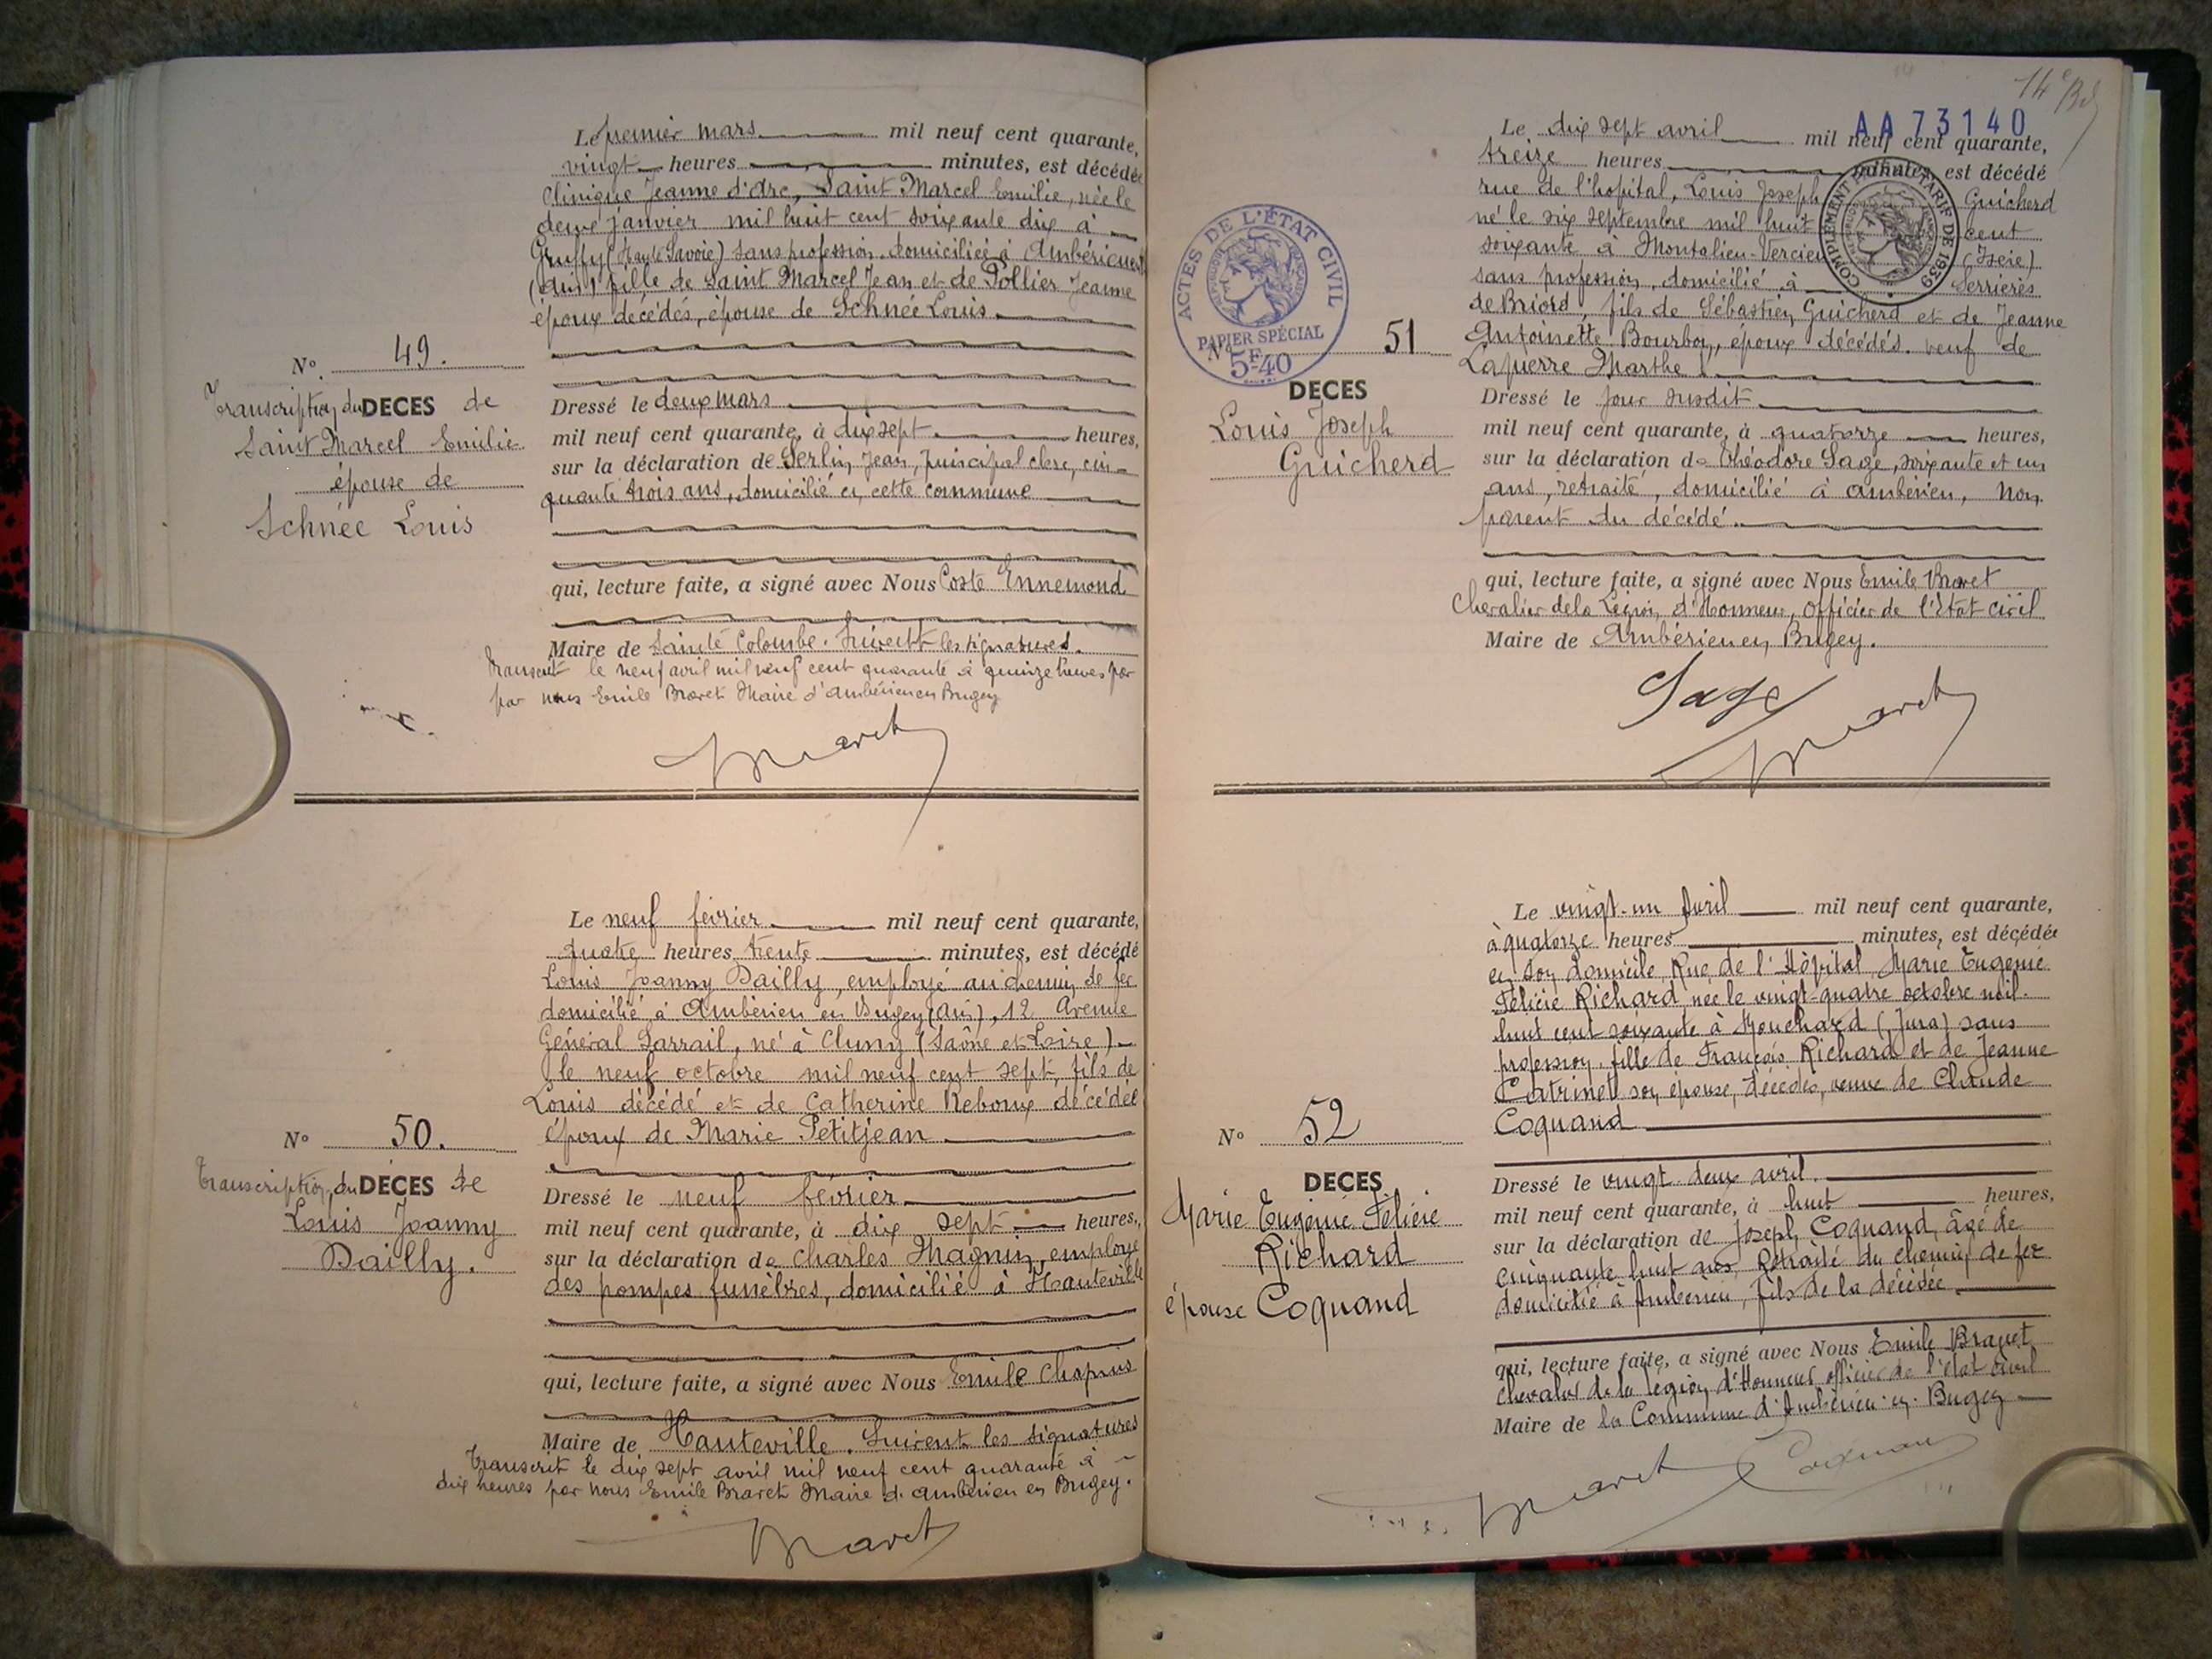 Le premier mars mil neuf cent quarante,
vingt heures minutes, est décédée
Clinique Jeanne d'Arc, Saint Marcel Emilie, née le
deux janvier mil huit cent soixante dix à
Gruffy (Haute Savoie) sans profession, domiciliée à Ambérieu
(Ain) fille de Saint Marcel Jean et de Pollier Jeanne
époux décédés, épouse de Schnée Louis
No. 49.
Transcription du DECES de
Saint Marcel Emilie
épouse de
Schnée Louis
Dressé le deux mars
mil neuf cent quarante, à dix sept heures,
sur la déclaration de Serlin Jean, principal clerc, cin-
quante trois ans, domicilié en cette commune
qui, lecture faite, a signé avec Nous Coste Ennemond
Maire de Sainte Colombe. Suivent les signatures.
Transcrit le neuf avril mil neuf cent quarante à quinze heures par
par nous Emile Bravet Maire d'Ambérieu en Bugey
Bravet
Le neuf février mil neuf cent quarante,
quatre heures trente minutes, est décédé
Louis Joanny Dailly, employé au chemin de fer
domicilié à Ambérieu en Bugey (Ain), 12 Avenue
Général Sarrail, né à Cluny (Saône et Loire)
le neuf octobre mil neuf cent sept, fils de
Louis décédé et de Catherine Reboux décédée
époux de Marie Petitjean
No 50.
Transcription du DÉCES de
Louis Joanny
Dailly.
Dressé le neuf février
mil neuf cent quarante, à dix sept heures,
sur la déclaration de Charles Magnin, employé
des pompes funèbres, domicilié à Hauteville
qui, lecture faite, a signé avec Nous Emile Chapuis
Maire de Hauteville. Suivent les signatures
Transcrit le dix sept avril mil neuf cent quarante à
dix heures par nous Emile Bravet Maire d'Ambérieu en Bugey.
Bravet
14e
AA 73140
Le dix sept avril mil neuf cent quarante,
treize heures minutes, est décédé
rue de l'hopital, Louis Joseph Guicherd
né le six septembre mil huit cent
soixante à Montalieu-Vercieu (Isère)
sans profession, domicilié à Serrières
de Briord, fils de Sébastien Guicherd et de Jeanne
Antoinette Bourbon, époux décédés. veuf de
Lapierre Marthe
COMPLEMENT TARIF DE 1939
ACTES DE L'ÉTAT CIVIL
PAPIER SPÉCIAL
5F40
No 51
DECES
Louis Joseph
Guicherd
Dressé le jour susdit
mil neuf cent quarante, à quatorze heures,
sur la déclaration de Théodore Sage, soixante et un
ans, retraité, domicilié à Ambérieu, non
parent du décédé.
qui, lecture faite, a signé avec Nous Emile Bravet
Chevalier de la Légion d'Honneur, Officier de l'état civil
Maire de Ambérieu en Bugey.
Sage
Bravet
Le vingt-un Avril mil neuf cent quarante,
à quatorze heures minutes, est décédée
en son domicile Rue de l'Hôpital, Marie Eugénie
Félicie Richard née le vingt-quatre octobre mil
huit cent soixante à Mouchard (Jura) sans
profession, fille de François Richard et de Jeanne
Catrinet son épouse, décédés, veuve de Claude
Coquand
No 52
DECES
Marie Eugénie Félicie
Richard
épouse Coquand
Dressé le vingt deux avril
mil neuf cent quarante, à huit heures,
sur la déclaration de Joseph Coquand, âgé de
cinquante huit ans, Retraité du chemin de fer
domicilié à Ambérieu, fils de la décédée
qui, lecture faite, a signé avec Nous Emile Bravet
Chevalier de la Légion d'Honneur officier de l'état civil
Maire de la Commune d'Ambérieu-en-Bugey
Bravet Coquand